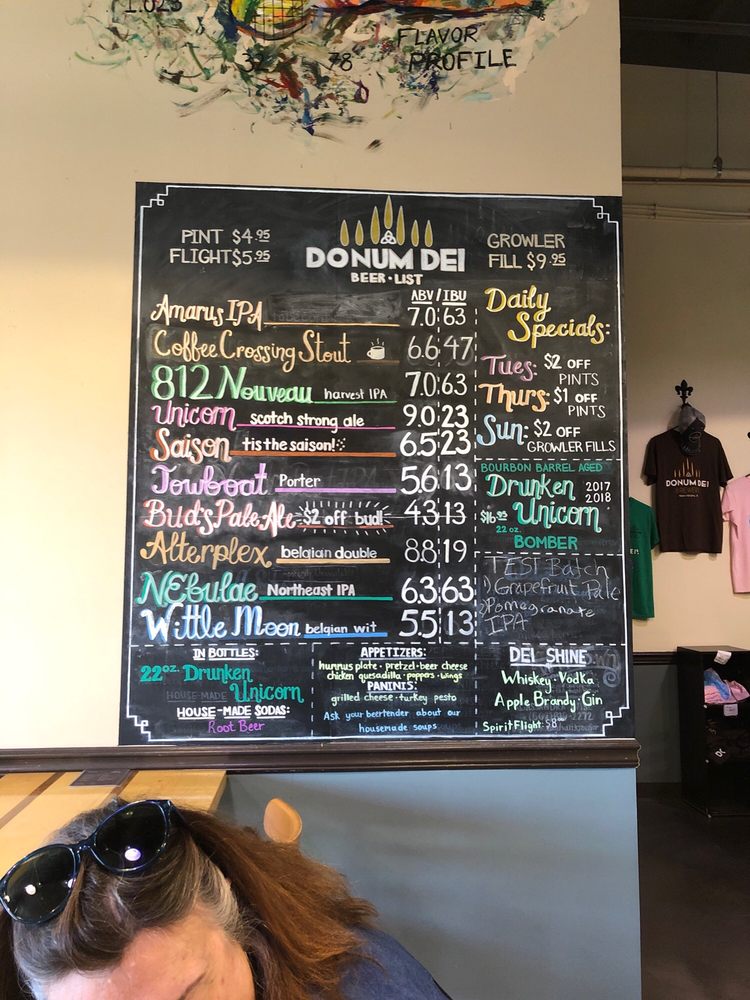 1.023
FLAVOR
PROFILE
32 78
PINT $4.95
FLIGHT $5.95
DONUM DEI
BEER-LIST
GROWLER
FILL $9.95
ABV/IBU
Amarus IPA 7.0 63
Coffee Crossing Stout 6.6 47
812 Nouveau harvest IPA 7.0 63
Unicorn scotch strong ale 9.0 23
Saison tis the saison! 6.5 23
Towboat Porter 5.6 13
Bud's Pale Ale $2 off bud! 4.3 13
Alterplex belgian double 8.8 19
NEbulae Northeast IPA 6.3 63
Wittle Moon belgian wit 5.5 13
Daily
Specials:
Tues: $2 OFF
PINTS
Thurs: $1 OFF
PINTS
Sun: $2 OFF
GROWLER FILLS
BOURBON BARREL AGED
Drunken 2017
2018
$16.95 Unicorn
22 oz.
BOMBER
TEST Batch
1) Grapefruit Pale
2) Pomegranate
IPA
IN BOTTLES:
22oz. Drunken
Unicorn
HOUSE-MADE SODAS:
Root Beer
APPETIZERS:
hummus plate · pretzel-beer cheese
chicken quesadilla · poppers · wings
PANINIS:
grilled cheese · turkey pesto
Ask your beertender about our
housemade soups
DEI SHINE
Whiskey · Vodka
Apple Brandy · Gin
Spirit Flight: $8
DONUM DEI